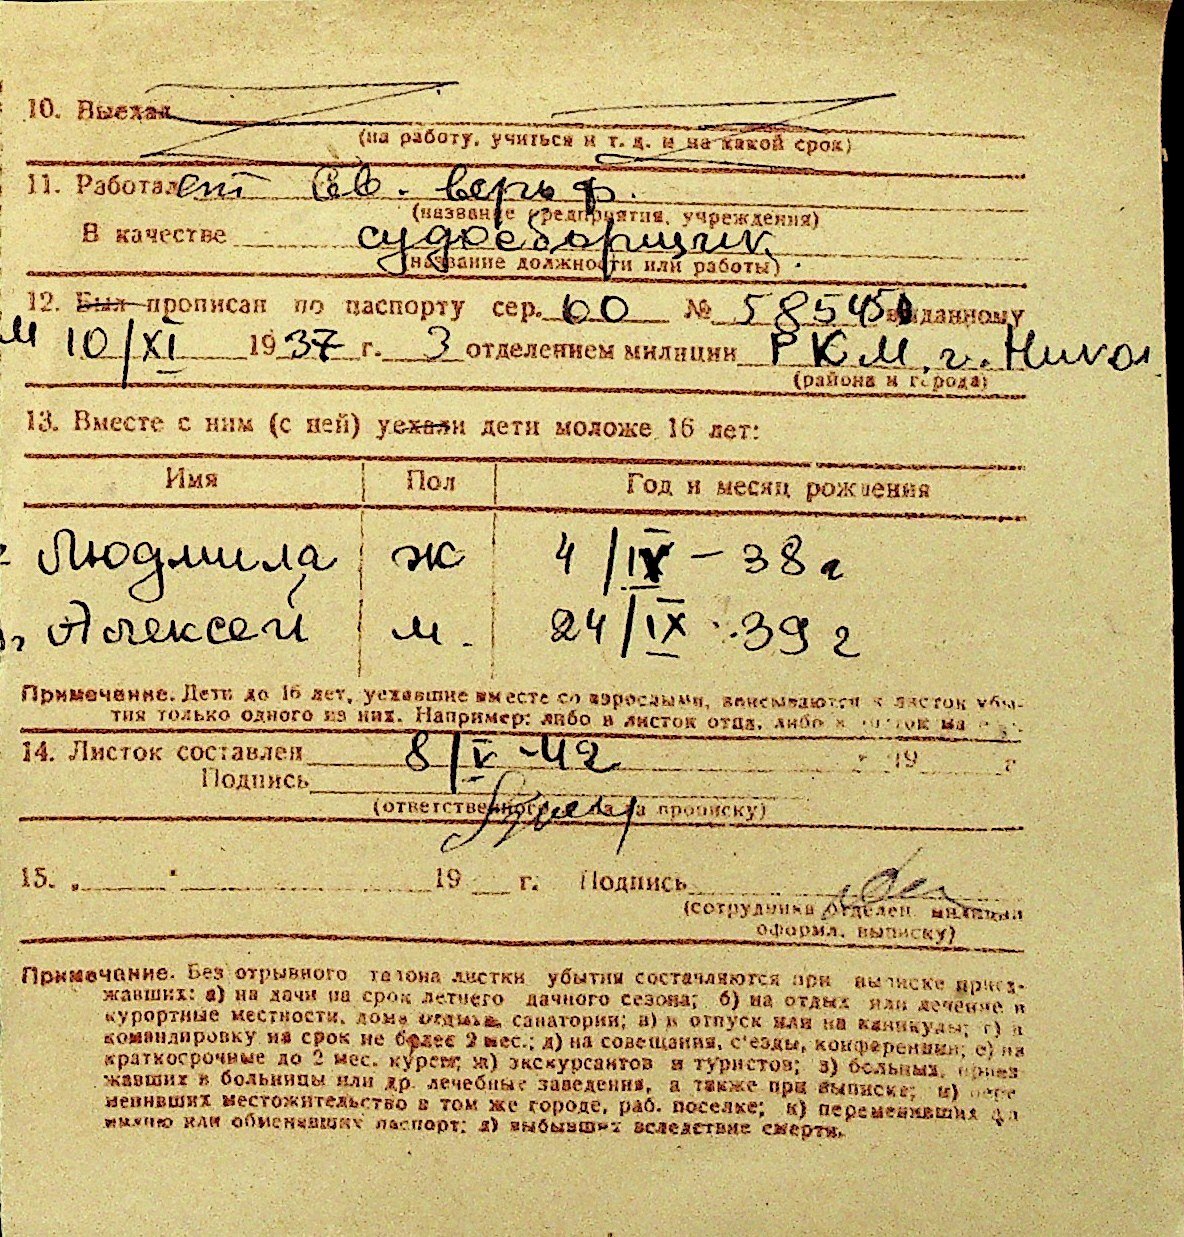 10. Выехал
(на работу, учиться и т. д. и на какой срок)
11. Работает Св. верьф.
(название предприятия, учреждения)
В качестве судосборщик
(название должности или работы)
12. Был прописан по паспорту сер. 60 № 585450 выданному
10/XI 1937 г. 3 отделением милиции РКМ, г. Никол
(района и города)
13. Вместе с ним (с ней) уехали дети моложе 16 лет:
Имя Пол Год и месяц рождения
Людмила ж 4/IX – 38 г
Алексей м. 24/IX - 39 г
Примечание. Дети до 16 лет, уехавшие вместе со взрослыми, вписываются в листок убы-
тия только одного из них. Например: либо в листок отца, либо в листок
14. Листок составлен 8/V-42 19 г
Подпись
(ответственного за прописку)
15. „ " 19 г. Подпись
(сотрудника отделен. милиции
оформл. выписку)
Примечание. Без отрывного талона листки убытия составляются при выписке приез-
жавших: а) на дачи на срок летнего дачного сезона; б) на отдых или лечение в
курортные местности, дома отдыха, санатории; в) в отпуск или на каникулы; г) в
командировку на срок не более 2 мес.; д) на совещания, с'езды, конференции; е) на
краткосрочные до 2 мес. курсы; ж) экскурсантов и туристов; з) больных, приез
жавших в больницы или др. лечебные заведения, а также при выписке; и) пере
менивших местожительство в том же городе, раб. поселке; к) переменивших фа
милию или обменявших паспорт; л) выбывших вследствие смерти.